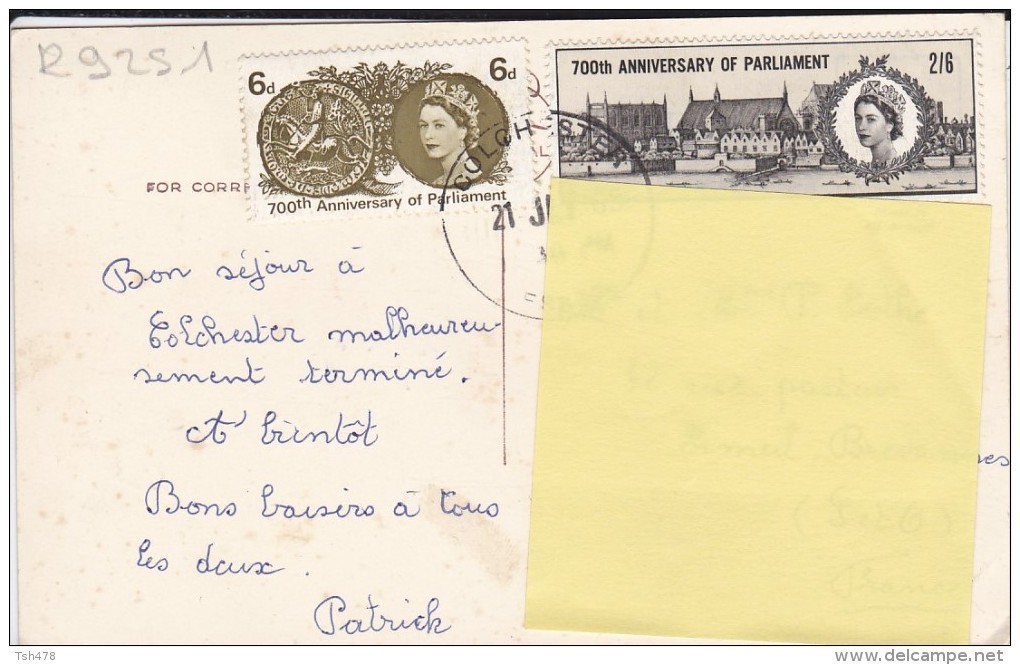 R9251
6d 6d
700th Anniversary of Parliament
700th ANNIVERSARY OF PARLIAMENT 2/6
COLCHESTER
21
FOR CORRE
Bon séjour à
Colchester malheureu-
sement terminé.
A bientôt
Bons baisers à tous
les deux.
Patrick
France
Tsh478
delcampe.net